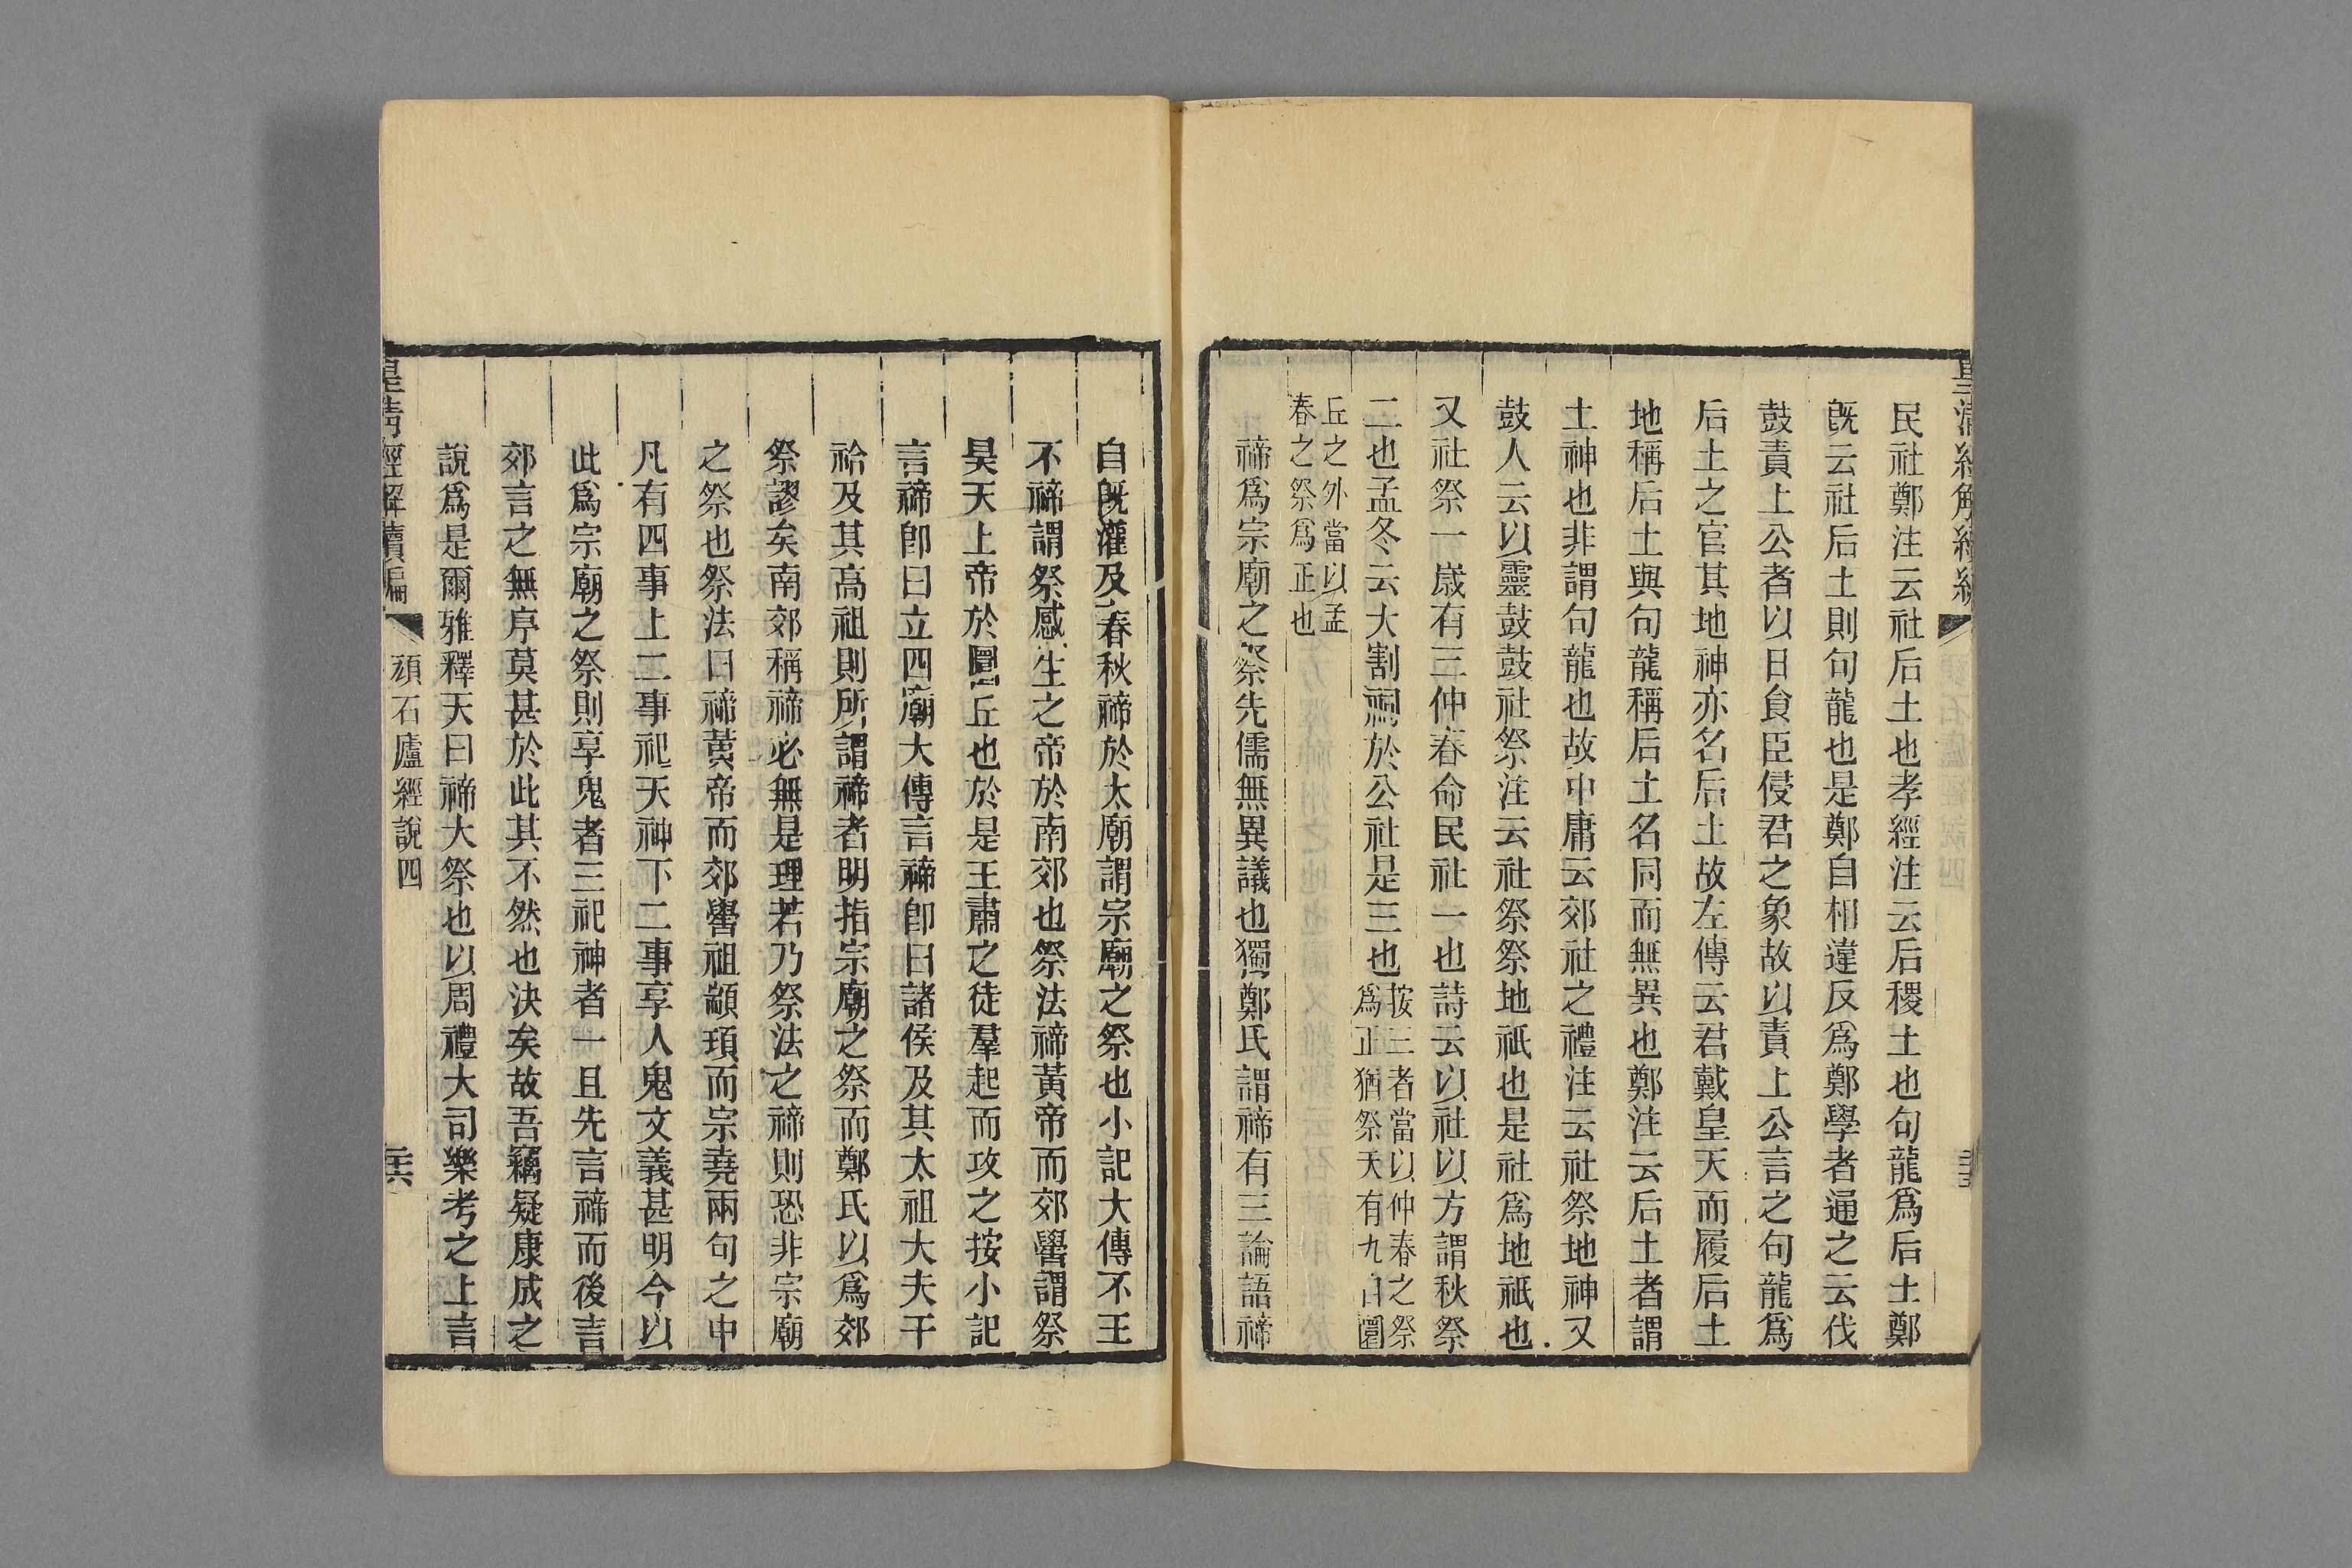 民社鄭注云社后土也孝經注云后稷土也句龍爲后土鄭
旣云社后土則句龍也是鄭自相違反爲鄭學者通之云伐
鼓責上公者以日食臣侵君之象故以責上公言之句龍爲
后土之官其地神亦名后土故左傳云君戴皇天而履后土
地稱后土與句龍稱后土名同而無異也鄭注云后土者謂
土神也非謂句龍也故中庸云郊社之禮注云社祭地神又
鼓人云以靈鼓鼓社祭注云社祭祭地祇也是社爲地祇也
又社祭一歲有三仲春命民社一也詩云以社以方謂秋祭
二也孟冬云大割祠於公社是三也
按三者當以仲春之祭
爲正猶祭天有九日圜
丘之外當以孟
春之祭爲正也
禘爲宗廟之祭先儒無異議也獨鄭氏謂禘有三論語禘
自旣灌及春秋禘於太廟謂宗廟之祭也小記大傳不王
不禘謂祭感生之帝於南郊也祭法禘黃帝而郊嚳謂祭
昊天上帝於圜丘也於是王肅之徒羣起而攻之按小記
言禘卽曰立四廟大傳言禘卽曰諸侯及其太祖大夫干
祫及其高祖則所謂禘者明指宗廟之祭而鄭氏以爲郊
祭謬矣南郊稱禘必無是理若乃祭法之禘則恐非宗廟
之祭也祭法曰禘黃帝而郊嚳祖顓頊而宗堯兩句之中
凡有四事上二事祀天神下二事享人鬼文義甚明今以
此爲宗廟之祭則享鬼者三祀神者一且先言禘而後言
郊言之無序莫甚於此其不然也決矣故吾竊疑康成之
說爲是爾雅釋天曰禘大祭也以周禮大司樂考之上言
皇清經解續編
頑石廬經說四